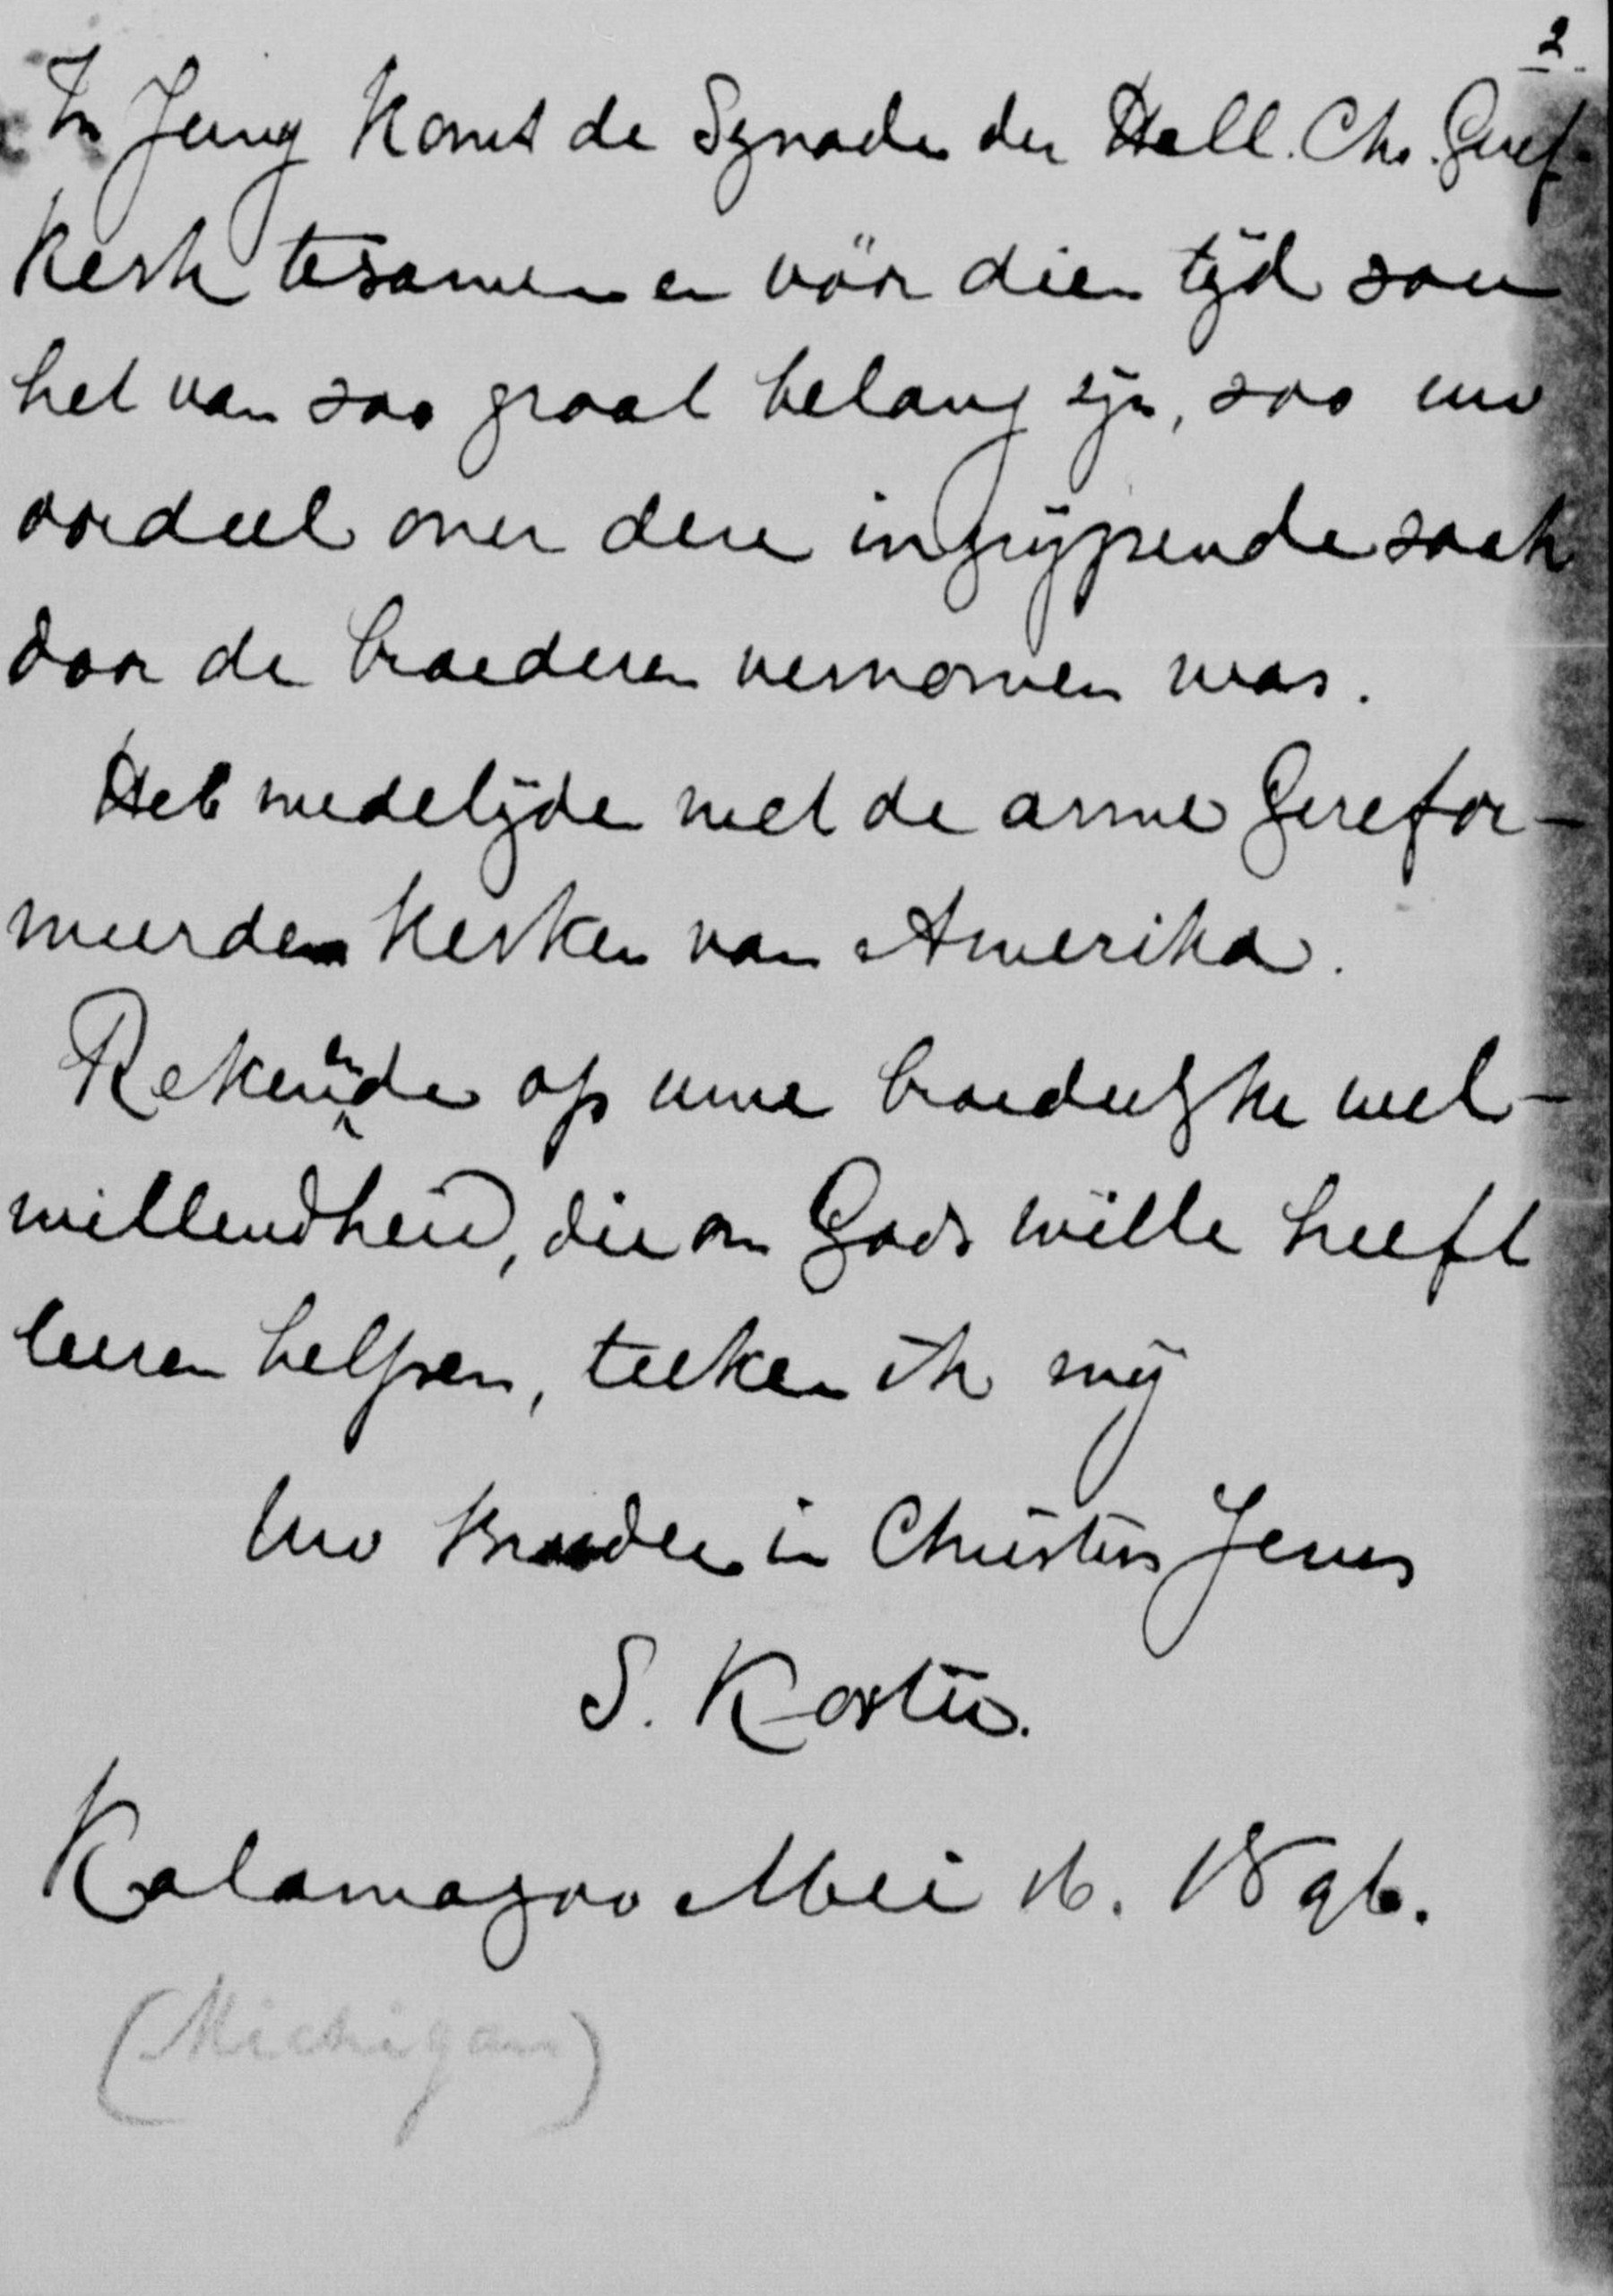 2.
In Juny komt de Synode der Holl. Chr. Geref.
Kerk tesamen en vóór dien tijd zou
het van zoo groot belang zijn, zoo uw
oordeel over deze ingrijpende zaak
door de broederen vernomen was.
Heb medelijden met de arme Gerefor-
meerden Kerken van Amerika.
Rekenende op uwe broederlijke wel-
willendheid, die om Gods wille heeft
leeren helpen, teeken ik mij
Uw Broeder in Christus Jezus
S. Koster.
Kalamazoo Mei 16. 1896.
(Michigan)